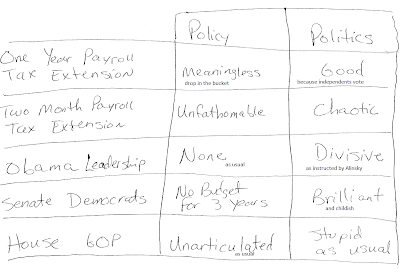 Policy Politics
One Year Payroll Meaningless Good
Tax Extension drop in the bucket because independents vote
Two Month Payroll Unfathomable Chaotic
Tax Extension
Obama Leadership None as usual Divisive
as instructed by Alinsky
Senate Democrats No Budget Brilliant
for 3 years and childish
House GOP Unarticulated Stupid
as usual as usual